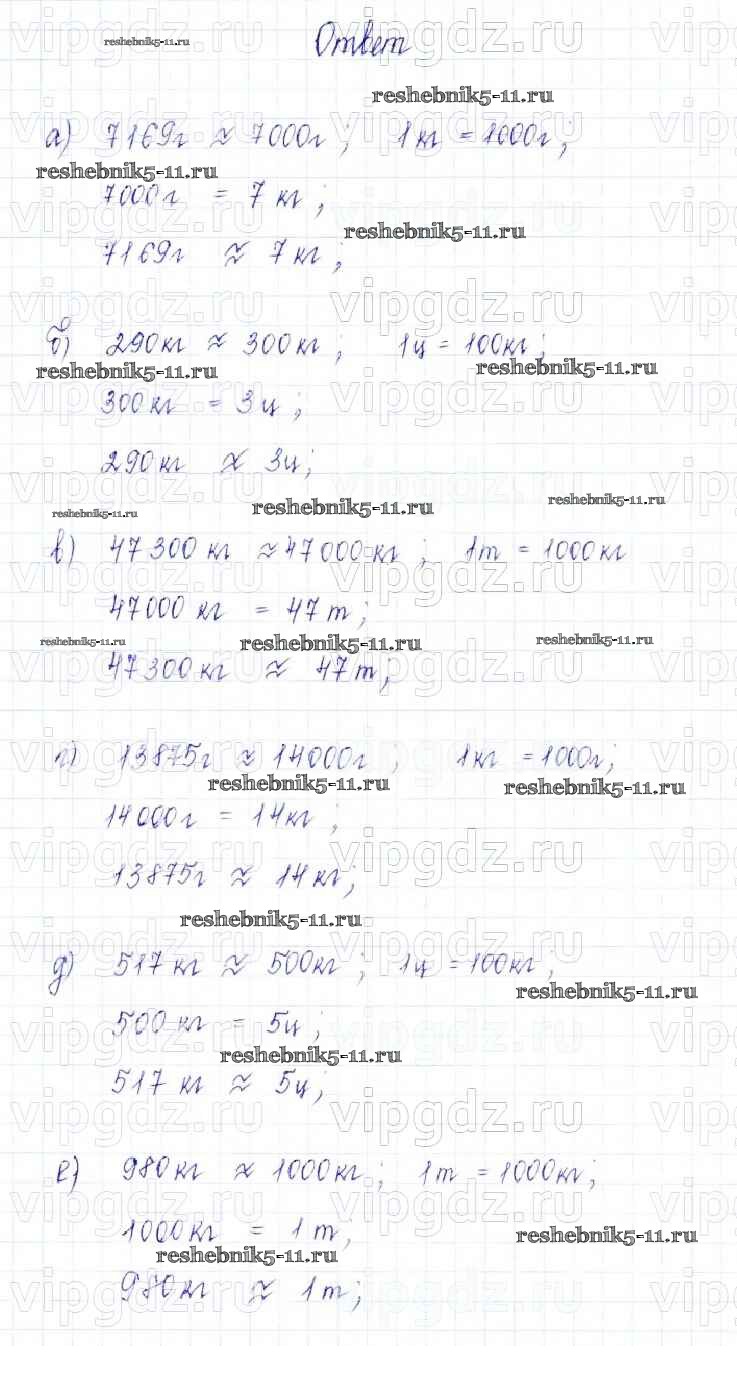 Ответ
reshebnik5-11.ru
vipgdz.ru
reshebnik5-11.ru
а) 7169г ≈ 7000г; 1 кг = 1000г;
reshebnik5-11.ru
7000г = 7 кг;
reshebnik5-11.ru
7169г ≈ 7 кг;
vipgdz.ru
б) 290кг ≈ 300кг; 1ц = 100кг;
reshebnik5-11.ru reshebnik5-11.ru
300кг = 3ц;
290кг ≈ 3ц;
reshebnik5-11.ru reshebnik5-11.ru reshebnik5-11.ru
в) 47300 кг ≈ 47000 кг; 1т = 1000кг
47000 кг = 47т;
reshebnik5-11.ru reshebnik5-11.ru reshebnik5-11.ru
47300кг ≈ 47т;
vipgdz.ru
г) 13875г ≈ 14000г; 1кг = 1000г;
reshebnik5-11.ru reshebnik5-11.ru
14000г = 14кг;
13875г ≈ 14кг;
reshebnik5-11.ru
д) 517 кг ≈ 500кг; 1ц = 100кг;
reshebnik5-11.ru
500 кг = 5ц;
reshebnik5-11.ru
517 кг ≈ 5ц;
vipgdz.ru
е) 980кг ≈ 1000кг; 1т = 1000кг;
1000кг = 1т;
reshebnik5-11.ru reshebnik5-11.ru
980кг ≈ 1т;